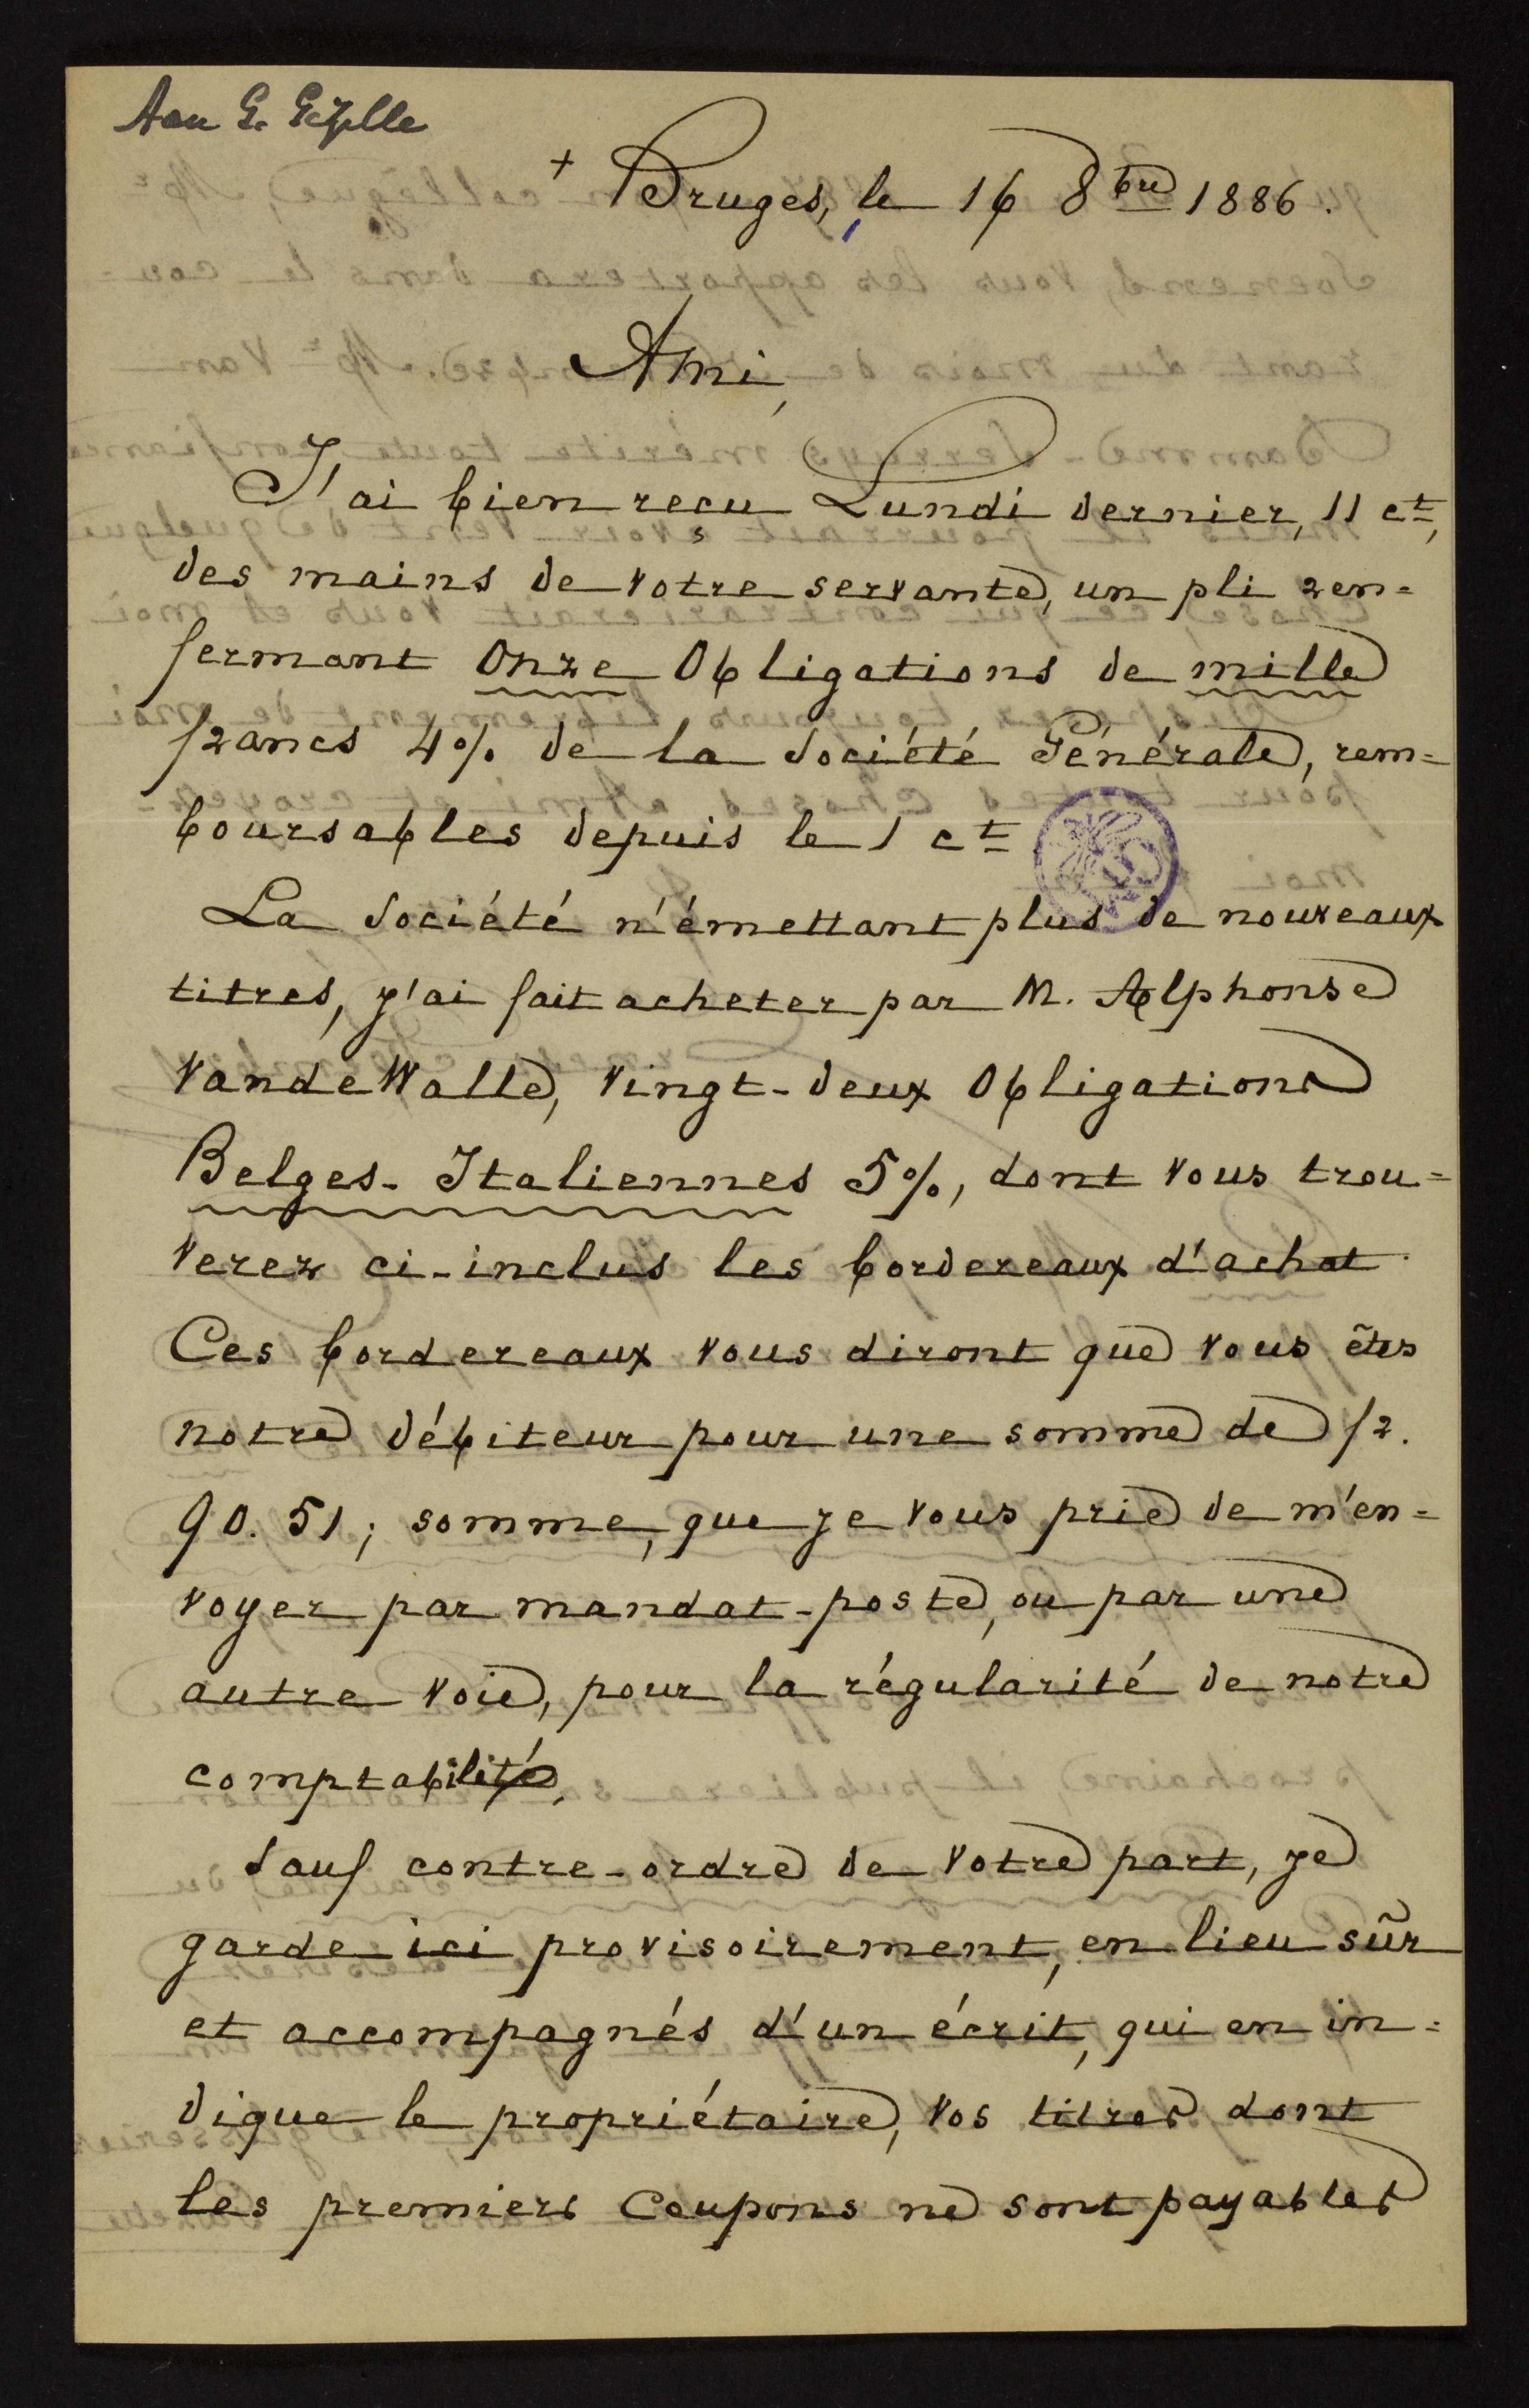 Aan G. Gezelle
+ Bruges, le 16 8bre 1886.
Ami,
J'ai bien reçu Lundi dernier, 11 ct,
des mains de votre servante, un pli ren=
fermant Onze Obligations de mille
francs 4% de la Société Générale, rem=
boursables depuis le 1 ct
La Société n'émettant plus de nouveaux
titres, j'ai fait acheter par M. Alphonse
VandeWalle, vingt-deux Obligations
Belges-Italiennes 5%, dont vous trou=
verez ci-inclus les bordereaux d'achat.
Ces bordereaux vous diront que vous êtes
notre débiteur pour une somme de fr.
90.51; somme, que je vous prie de m'en=
voyer par mandat-poste, ou par une
autre voie, pour la régularité de notre
comptabilité.
Sauf contre-ordre de votre part, je
garde ici provisoirement, en lieu sûr
et accompagnés d'un écrit, qui en in=
dique le propriétaire, vos titres dont
les premiers Coupons ne sont payables